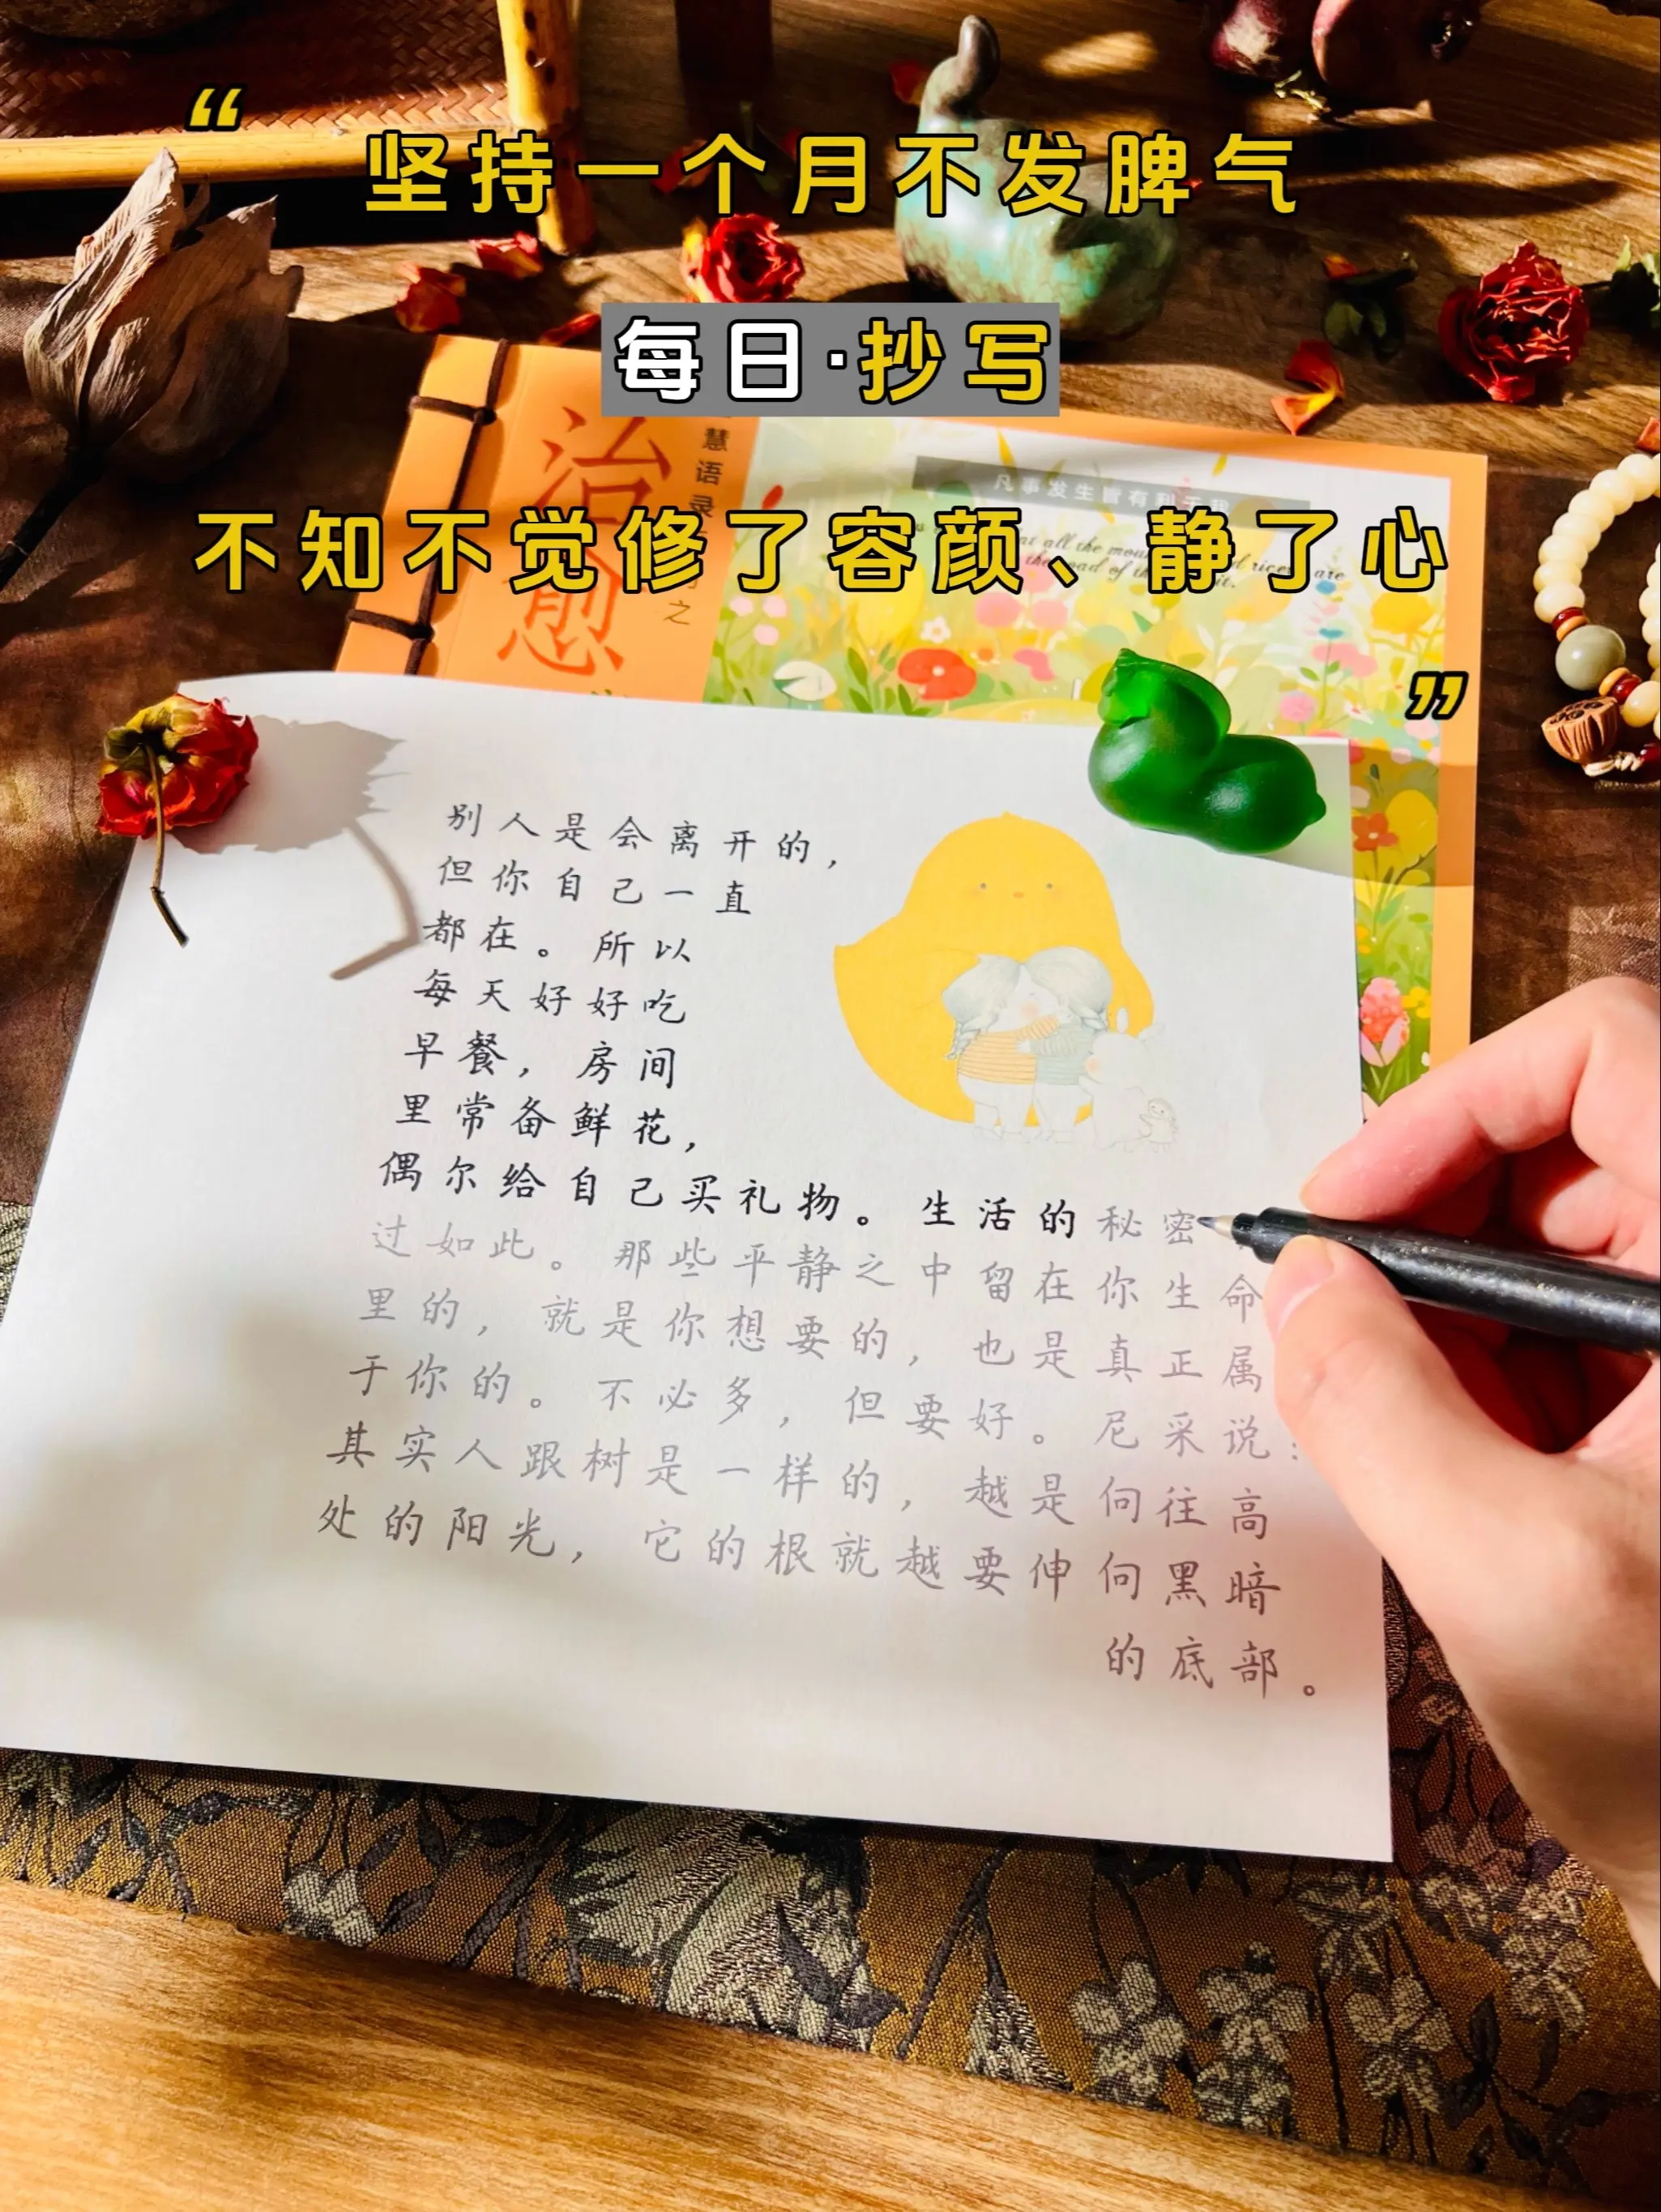 “
坚持一个月不发脾气
每日·抄写
不知不觉修了容颜、静了心
”
治愈
慧语录
之
凡事发生皆有利于我
at all the
are
road of
别人是会离开的，
但你自己一直
都在。所以
每天好好吃
早餐，房间
里常备鲜花，
偶尔给自己买礼物。生活的秘密
过如此。那些平静之中留在你生命
里的，就是你想要的，也是真正属
于你的。不必多，但要好。尼采说：
其实人跟树是一样的，越是向往高
处的阳光，它的根就越要伸向黑暗
的底部。